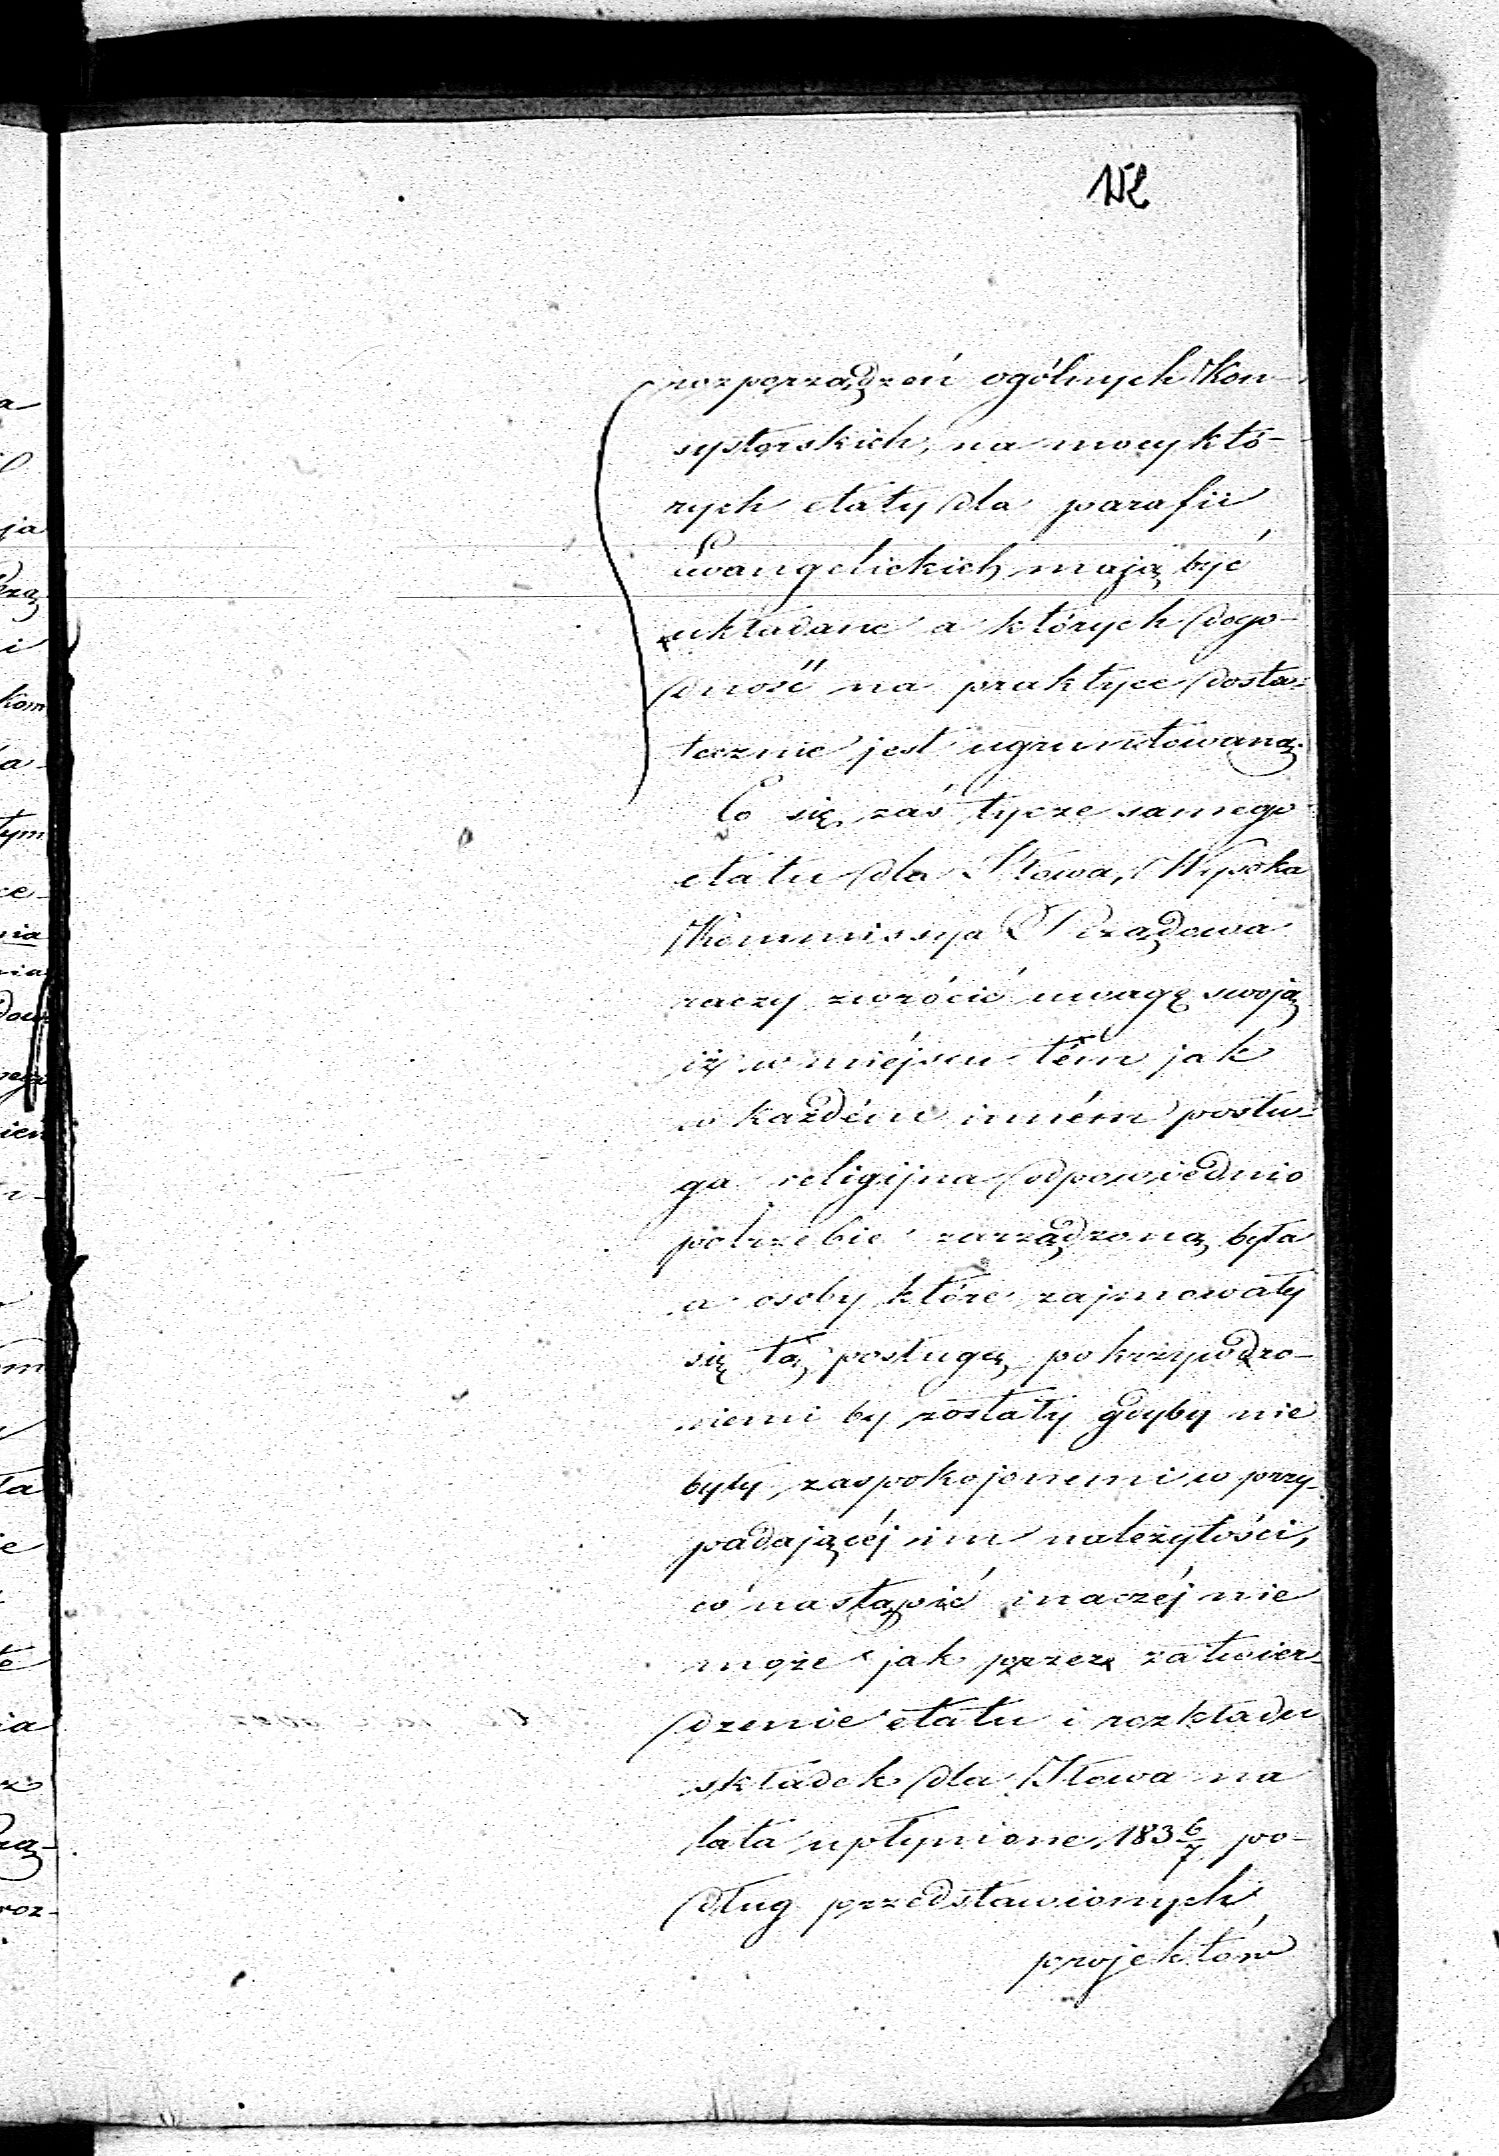 rozporządzeń ogólnych Kon-
systorskich, na mocy któ-
rych etaty dla parafii
Ewangelickich mają być
układane a których dogo-
dność na praktyce dosta-
tecznie jest ugruntowaną.
Co się zaś tycze samego
etatu dla Iłowa, Wysoka
Kommissya Rządowa
raczy zwrócić uwagę swoją
iż w miéjscu tém jak
w każdém inném posłu-
ga religijna odpowiednio
potrzebie zarządzoną była
a osoby które zajmowały
się tą posługą pokrzywdzo-
niemi by zostały gdyby nie
były zaspokojonemi w przy-
padającéj im należytości,
co nastąpić inaczéj nie
może jak przez zatwier-
dzenie etatu i rozkładu
składek dla Iłowa na
lata upłynione 183 6/7 po-
dług przedstawionych
projektów